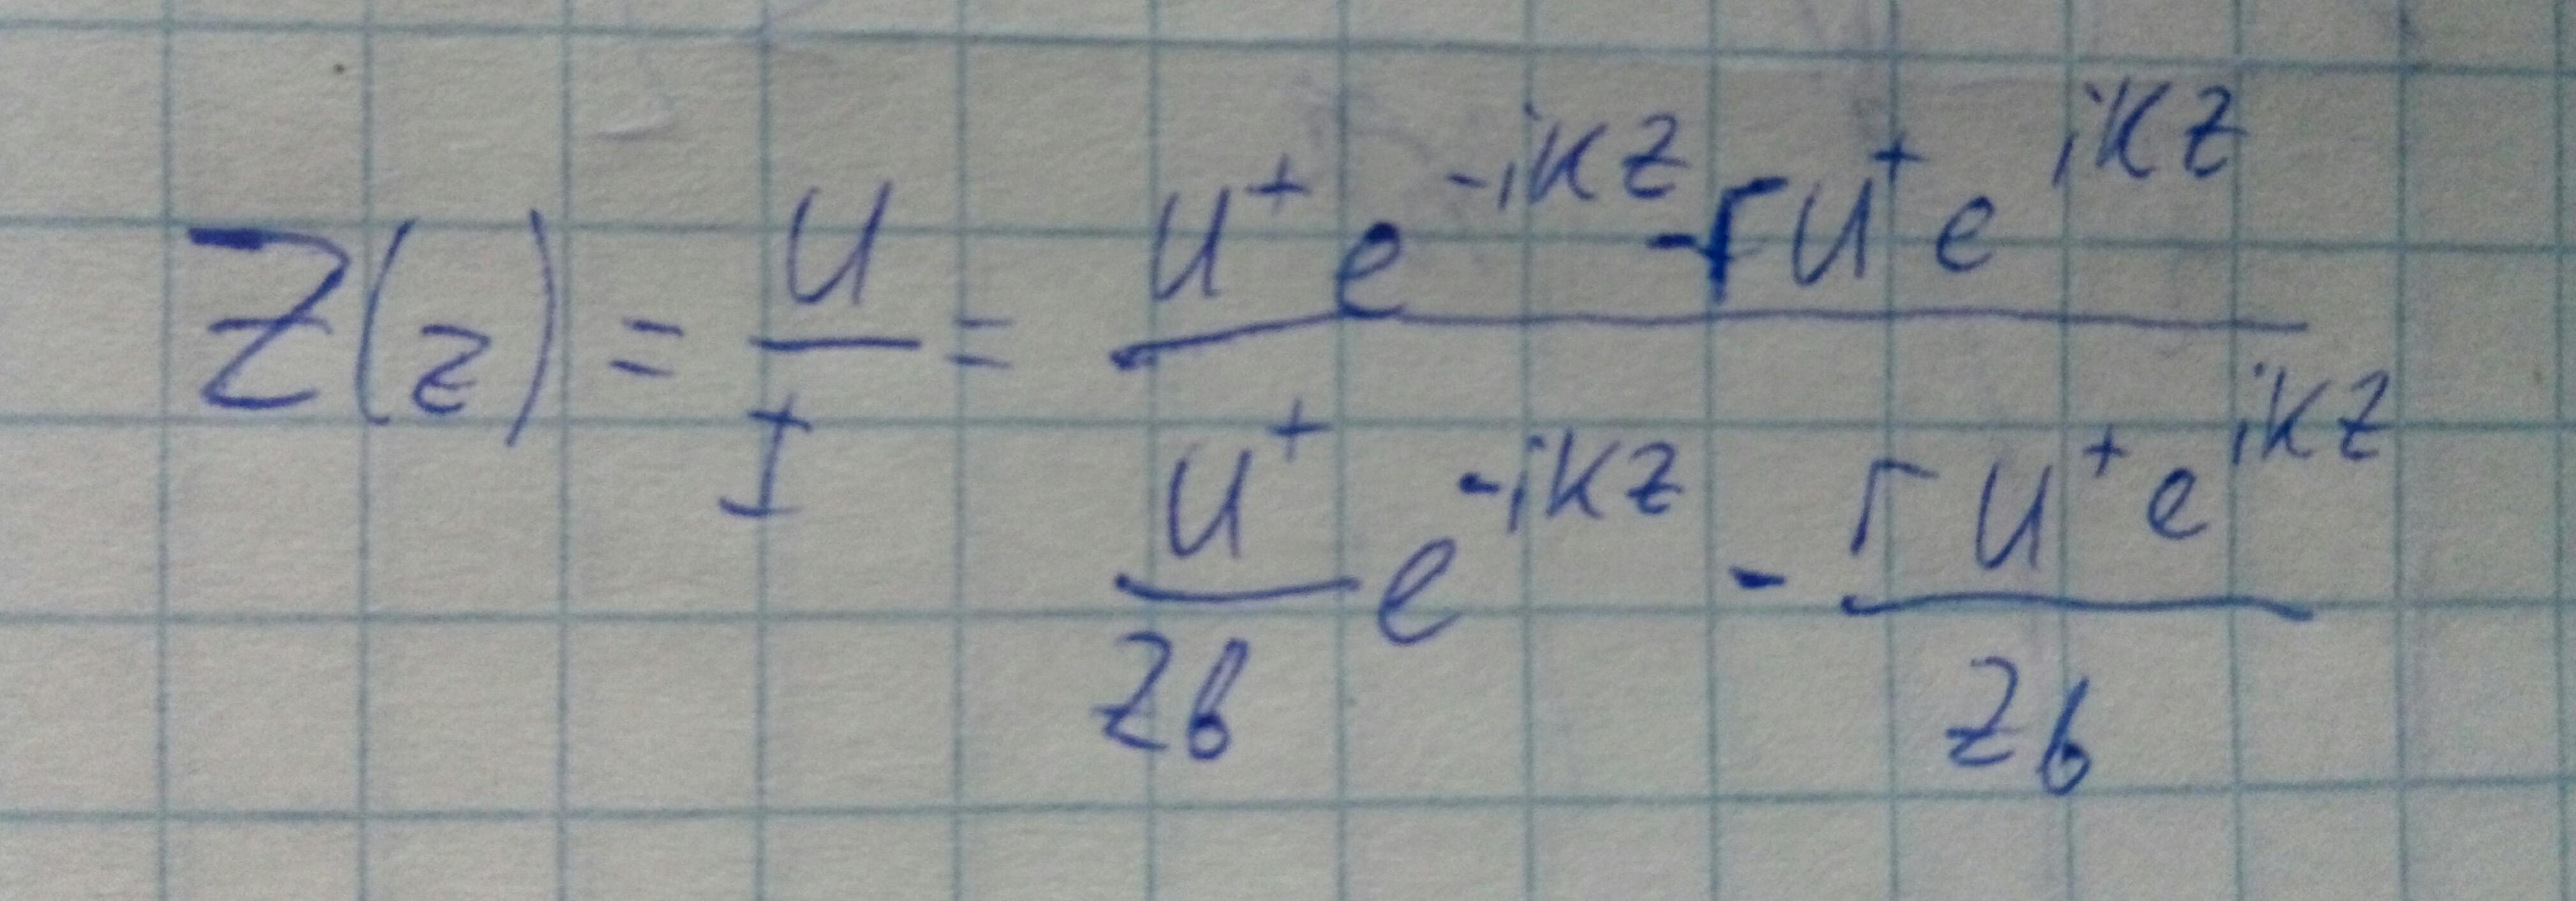 Z(z) = \frac{U}{I} = \frac{U^{+} e^{-ikz} - Г U^{+} e^{ikz}}{\frac{U^{+}}{Z_в} e^{-ikz} - \frac{Г U^{+} e^{ikz}}{Z_в}}